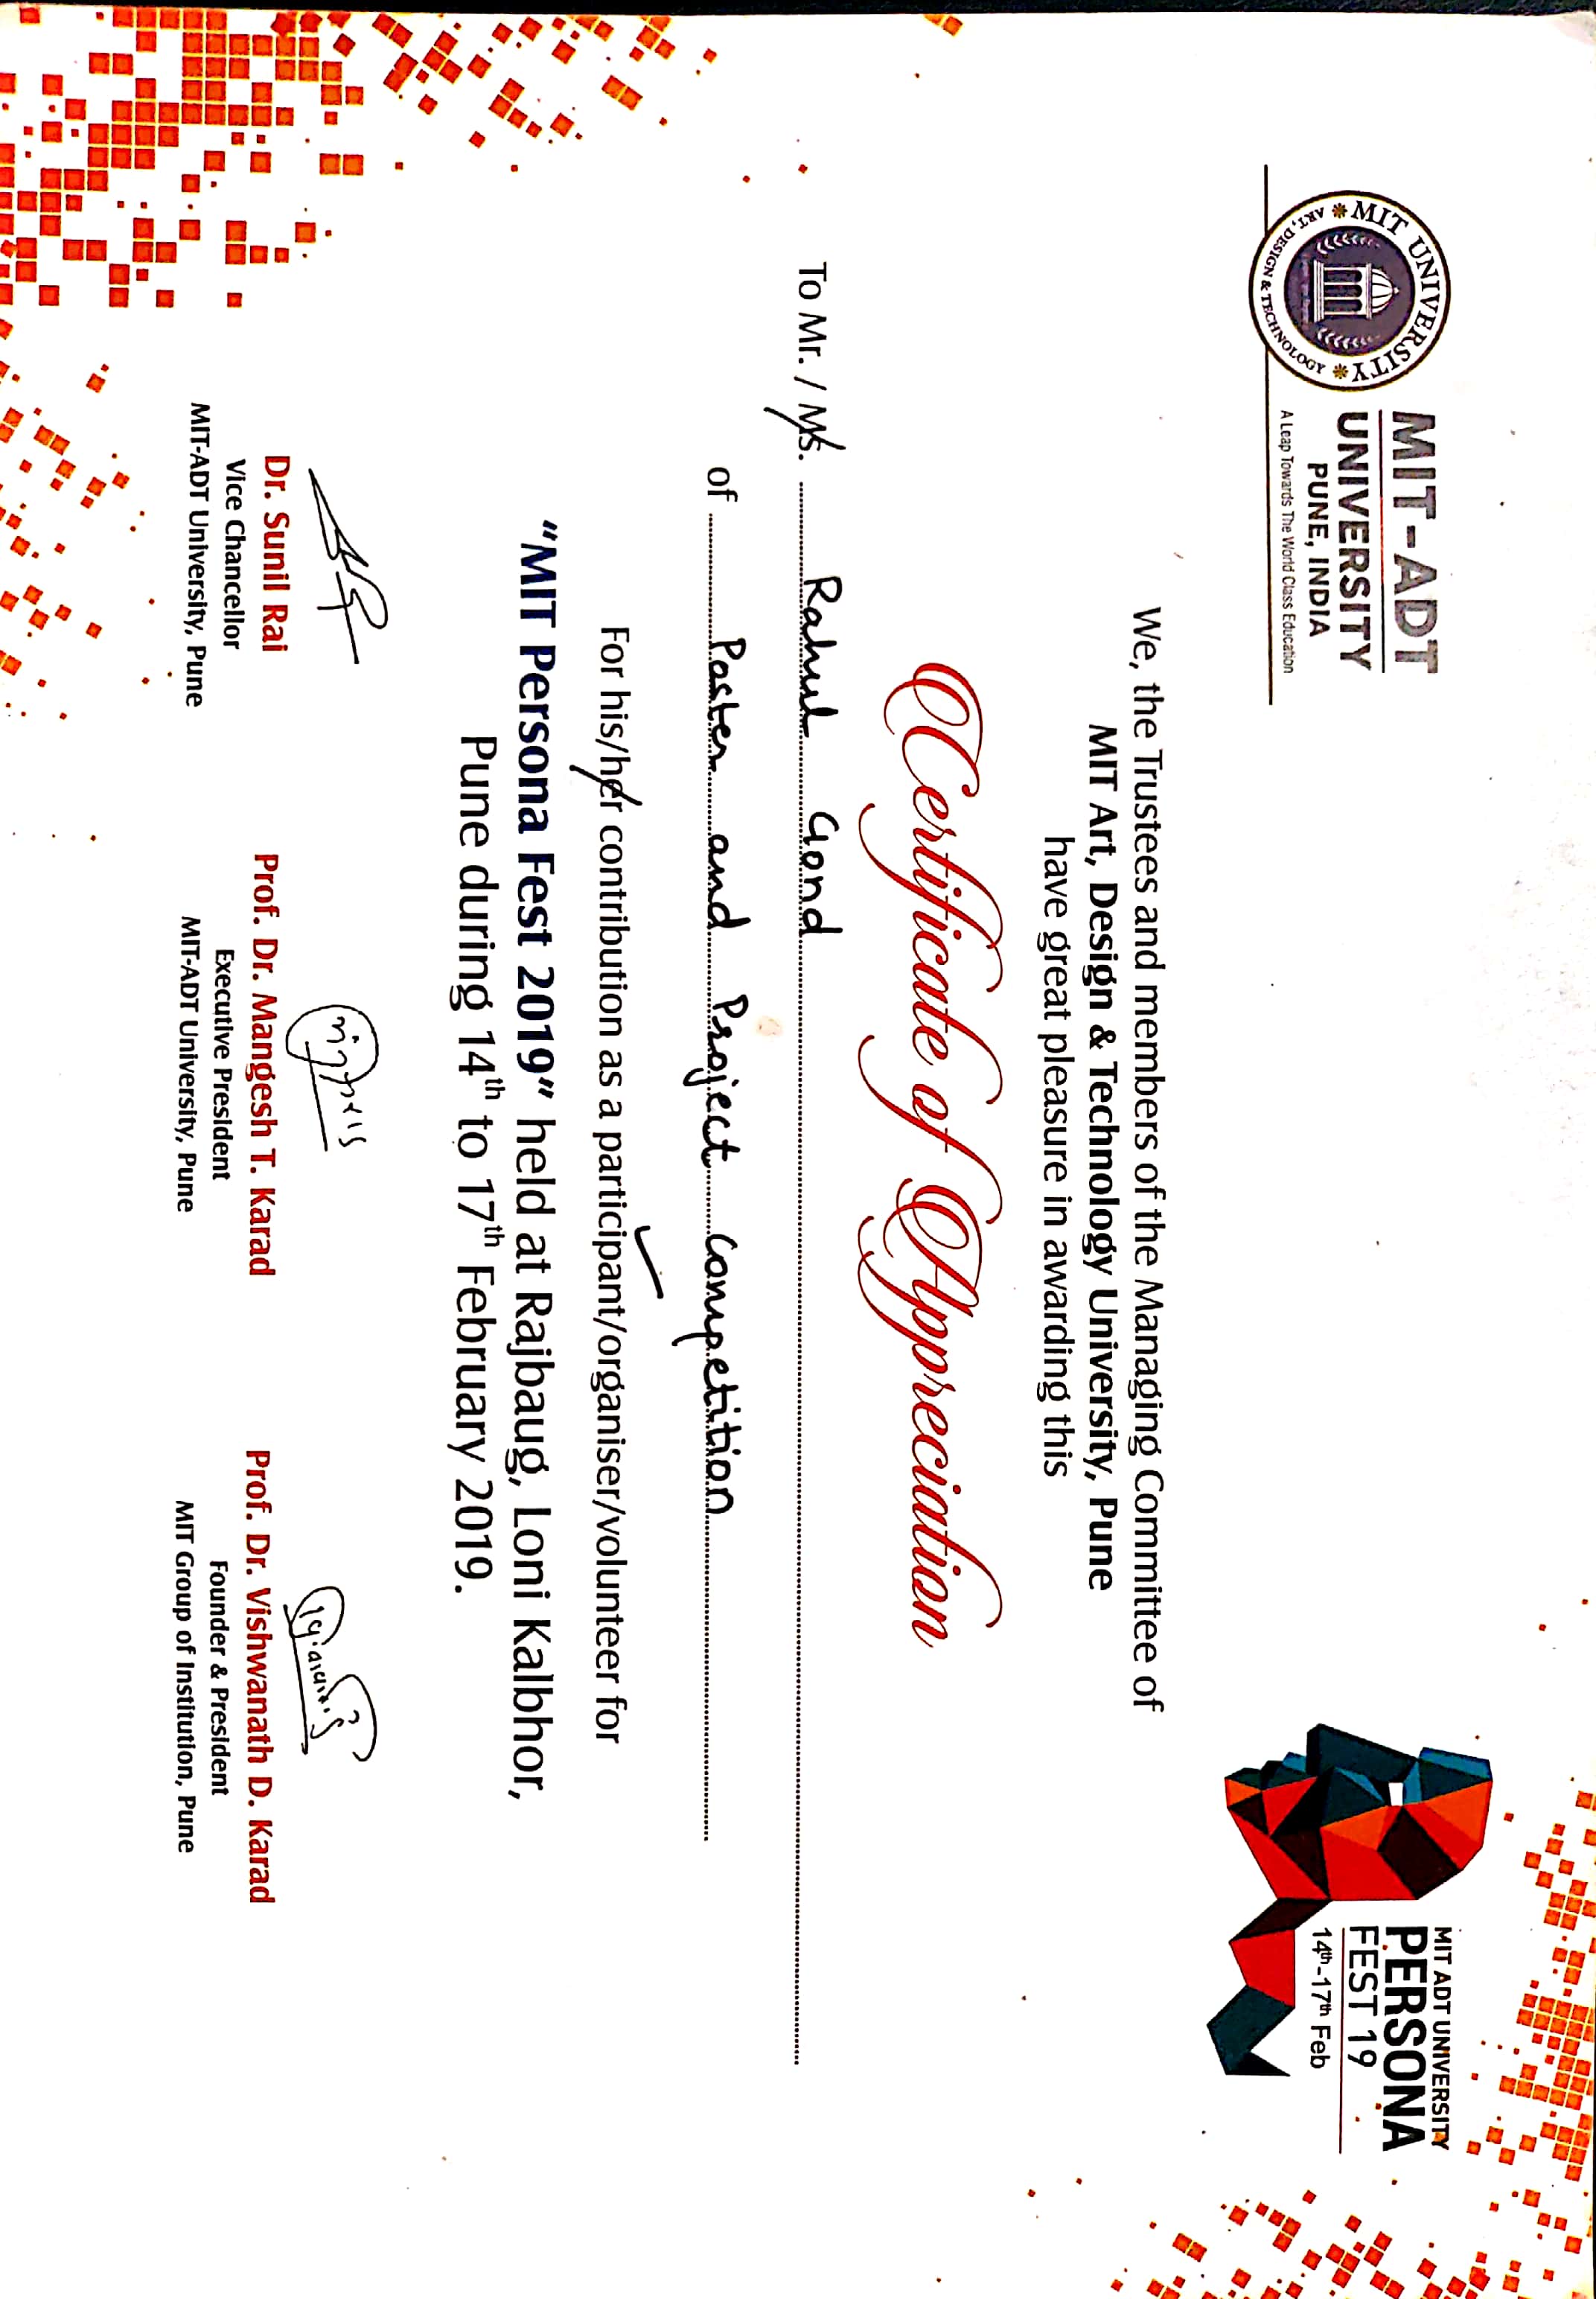 MIT UNIVERSITY
ART, DESIGN & TECHNOLOGY
MIT-ADT
UNIVERSITY
PUNE, INDIA
A Leap Towards The World Class Education
MIT ADT UNIVERSITY
PERSONA
FEST 19
14th-17th Feb
We, the Trustees and members of the Managing Committee of
MIT Art, Design & Technology University, Pune
have great pleasure in awarding this
Certificate of Appreciation
To Mr. / Ms. Rahul Gond
of Poster and Project Competition
For his/her contribution as a participant/organiser/volunteer for
“MIT Persona Fest 2019” held at Rajbaug, Loni Kalbhor,
Pune during 14th to 17th February 2019.
Dr. Sunil Rai
Vice Chancellor
MIT-ADT University, Pune
Prof. Dr. Mangesh T. Karad
Executive President
MIT-ADT University, Pune
Prof. Dr. Vishwanath D. Karad
Founder & President
MIT Group of Institution, Pune